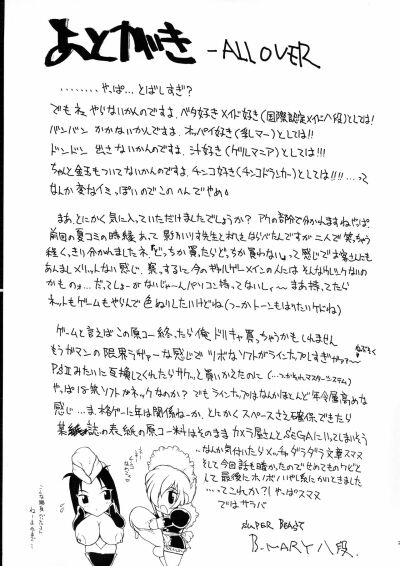 あとがき -ALL OVER
........やっぱ…とばしすぎ?
でもネェ やらないかんのですよ.ベタ好きメイド好き(国際認定メイド八段)としては!
バンバン かかないかんですよ.オッパイ好き(乳マー)としては!!
ドンドン 出さないかんのですよ.汁好き(ゲルマニア)としては!!!
ちゃんと金玉もついてないかんのですよ.チンコ好き(チンコドランカー)としては!!!…って
なんか変なイミっぽいのでこのへんでやめ。
まあ、とにかく気に入っていただけましたでしょうか?アクの部分で分かれますねやっぱ.
前回の夏コミの時
二人で笑っちゃう
程くっきり分かれましたネ.『どっちか買ったらどっちか買わない』って感じで
あんましメリットない感じ.察するに今のギャルゲーメインの人には そんなもんウケないの
かものォ…だってしょーがないじゃんパソコン持ってないしィ〜 まあ、持ってたら
ネットもゲームもやらんで色ぬりしたいけどね(つーかトーンもはりたいケドね)
ゲームと言えばこの原コー終ったら俺、ドリキャス買っちゃうかもしれません
もうガマンの限界ラヴァーな感じでツボなソフトがラインナップしすぎ
PSⅡみたいに互換してくれたらサクッと買いかえたのに(…つかわれマスターシステム)
やっぱ ソフトがネックなのか?でもラインナップはなんかほとんど年令層高めな
感じ…ま、格ゲーに年は関係ねーか、とにかくスペースさえ確保できたら
某紙誌の表紙の原コー料はそのままカメラ屋さんとSEGAに入ってしまいそう
なんか気付いたらメッチャダラダラ文章スマヌ
そして今回話も暗かったのでせめてものケジメと
して最後にホノボノハヤし系にかいときました
…ってこれか?!やっぱスマヌ
ではサラバ
SUPER BEAST
B-MARY 八段